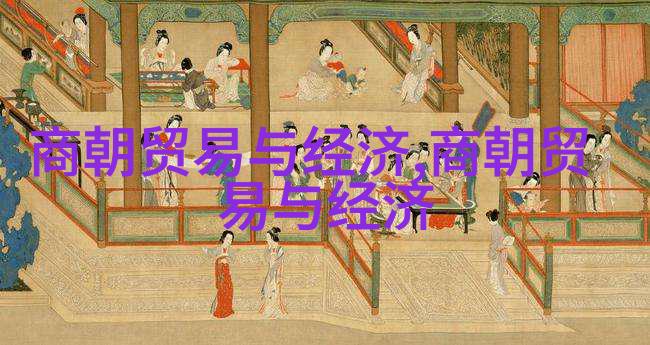 商朝贸易与经济,商朝贸
易与经济